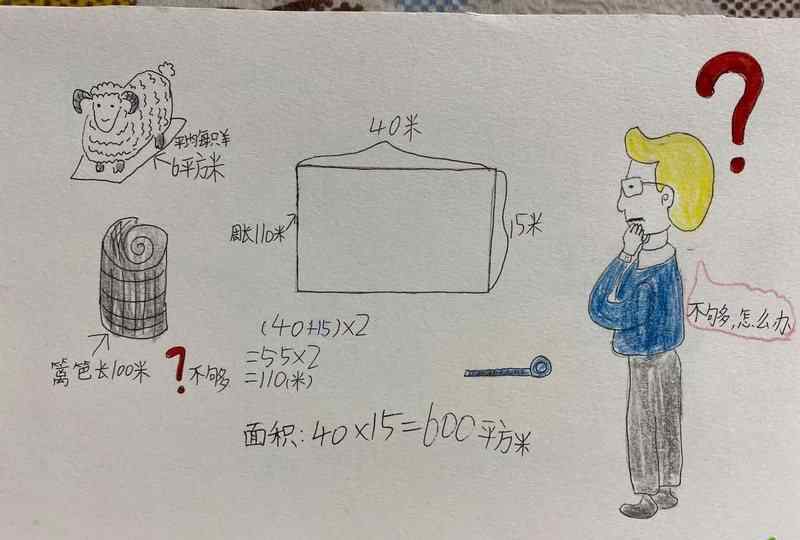 平均每只羊
6平方米
40米
周长110米
15米
(40+15)×2
=55×2
=110(米)
篱笆长100米
?不够多
面积:40×15=600平方米
?
不够多,怎么办